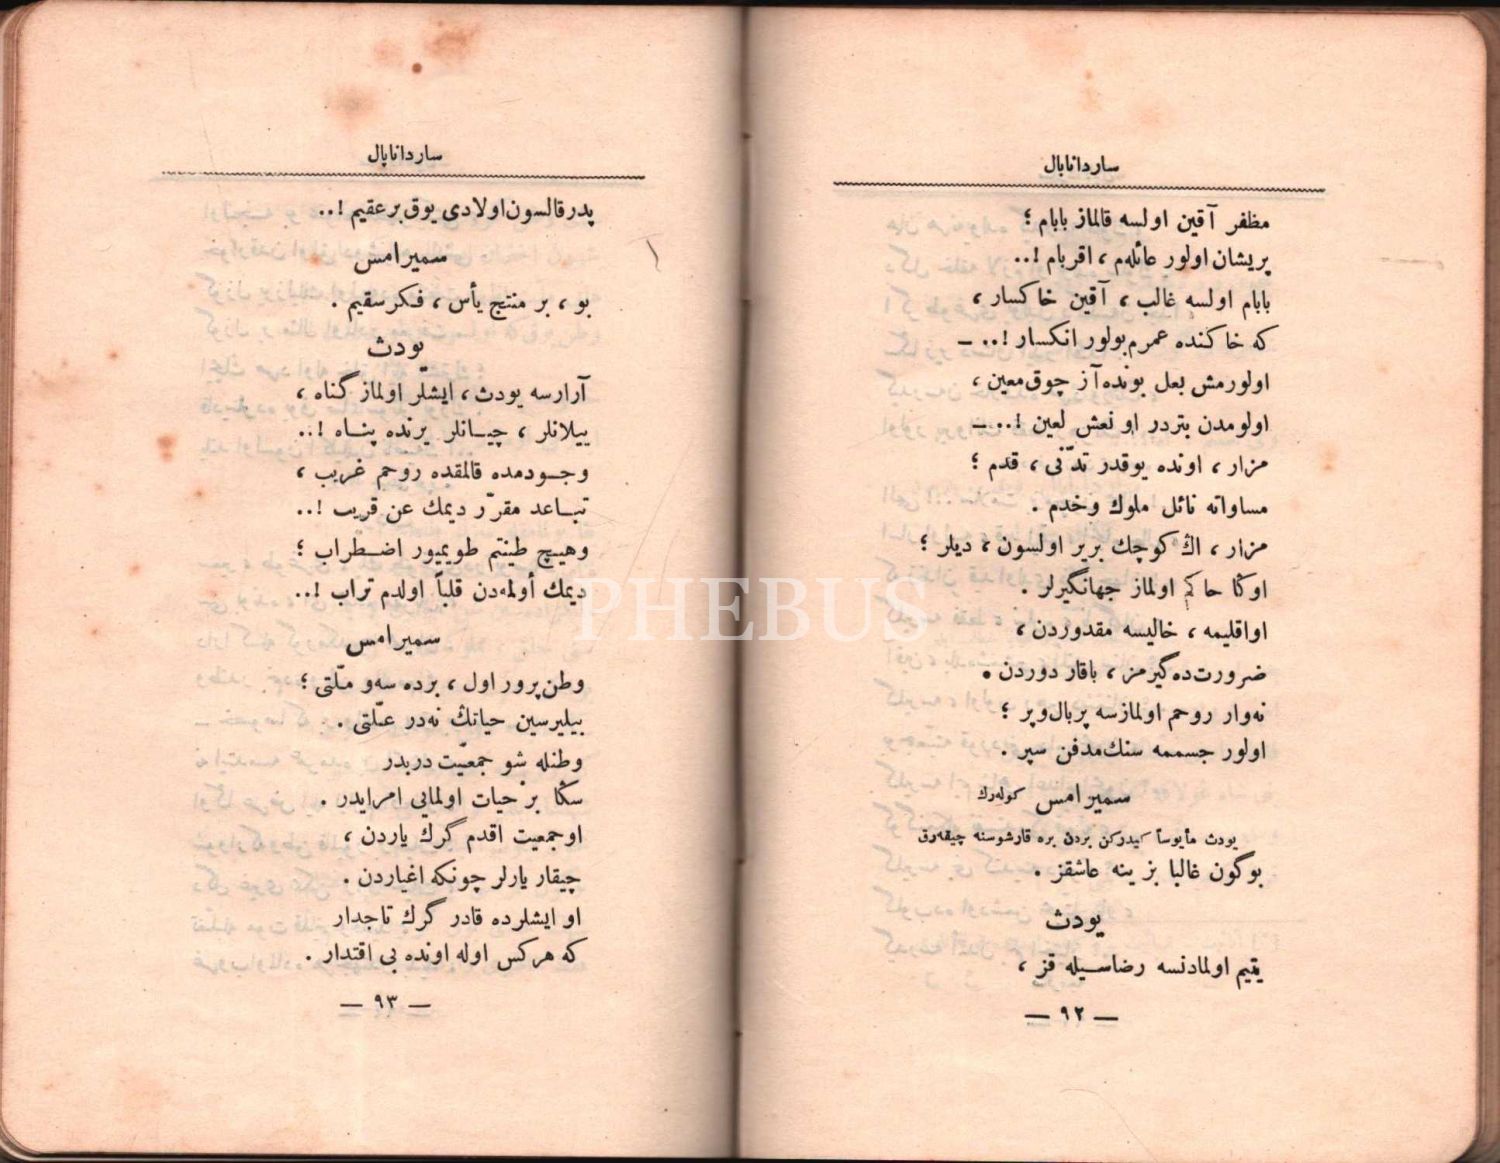 ساردانابال
مظفر آقین اولسه قالماز بابام ؛
پریشان اولور عائله‌م ، اقربام !..
بابام اولسه غالب ، آقین خاکسار ،
که خاکنده عمرم بولور انکسار !.. —
اولورمش بعل بونده آز چوق معین ،
اولومدن بتردر او نعش لعین !.. —
مزار ، اونده یوقدر تدنّی ، قدم ؛
مساواته نائل ملوك وخدم .
مزار ، اڭ کوچك بریر اولسون ، دیلر ؛
اوکا حاکم اولماز جهانگیرلر .
اواقلیمه ، خالیسه مقدوردن ،
ضرورت‌ده گیرمز ، باقار دوردن .
نه‌وار روحم اولمازسه پربال‌وپر ؛
اولور جسممه سنك‌مدفن سپر .
سمیرامس کوله‌رك
یودث مأیوساً کیدرکن بردن بره قارشوسنه چیقه‌رق
بوگون غالبا بز ینه عاشقز .
یودث
یتیم اولمادنسه رضاسیله قز ،
— ٩٢ —
ساردانابال
پدرقالسون‌اولادی یوق برعقیم !..
سمیرامس
بو ، بر منتج یأس ، فکرسقیم .
یودث
آرارسه یودث ، ایشلر اولماز گناه ،
ییلانلر ، چیانلر یرنده پناه !..
وجودمده قالمقده روحم غریب ،
تباعد مقرّر دیمك عن قریب !..
وهیچ طینتم طویمیور اضطراب ؛
دیمك أولمه‌دن قلباً اولدم تراب !..
سمیرامس
وطن‌پرور اول ، برده سه‌و ملّتی ؛
بیلیرسین حیاتڭ نه‌در علّتی .
وطنله شو جمعیّت دربدر
سڭا بر حیات اولمایی امرایدر .
اوجمعیت اقدم گرك یاردن ،
چیقار یارلر چونکه اغیاردن .
او ایشلرده قادر گرك تاجدار
که هرکس اوله اونده بی اقتدار .
— ٩٣ —
PHEBUS